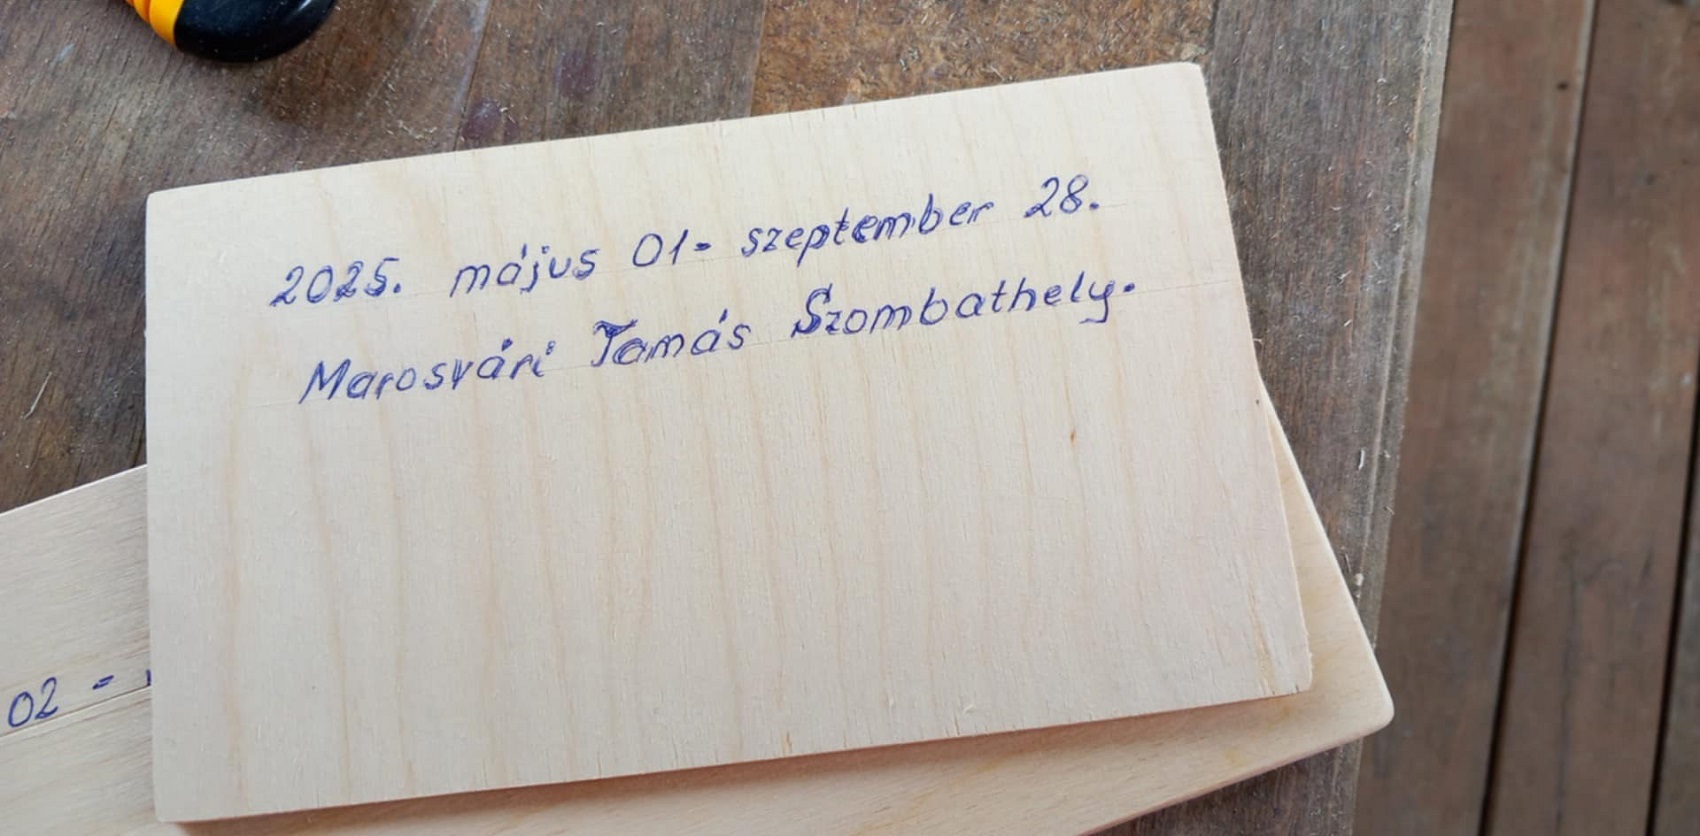 2025. május 01- szeptember 28.
Marosvári Tamás Szombathely.
02 -